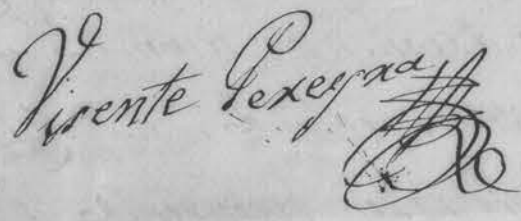 Visente Pereyra